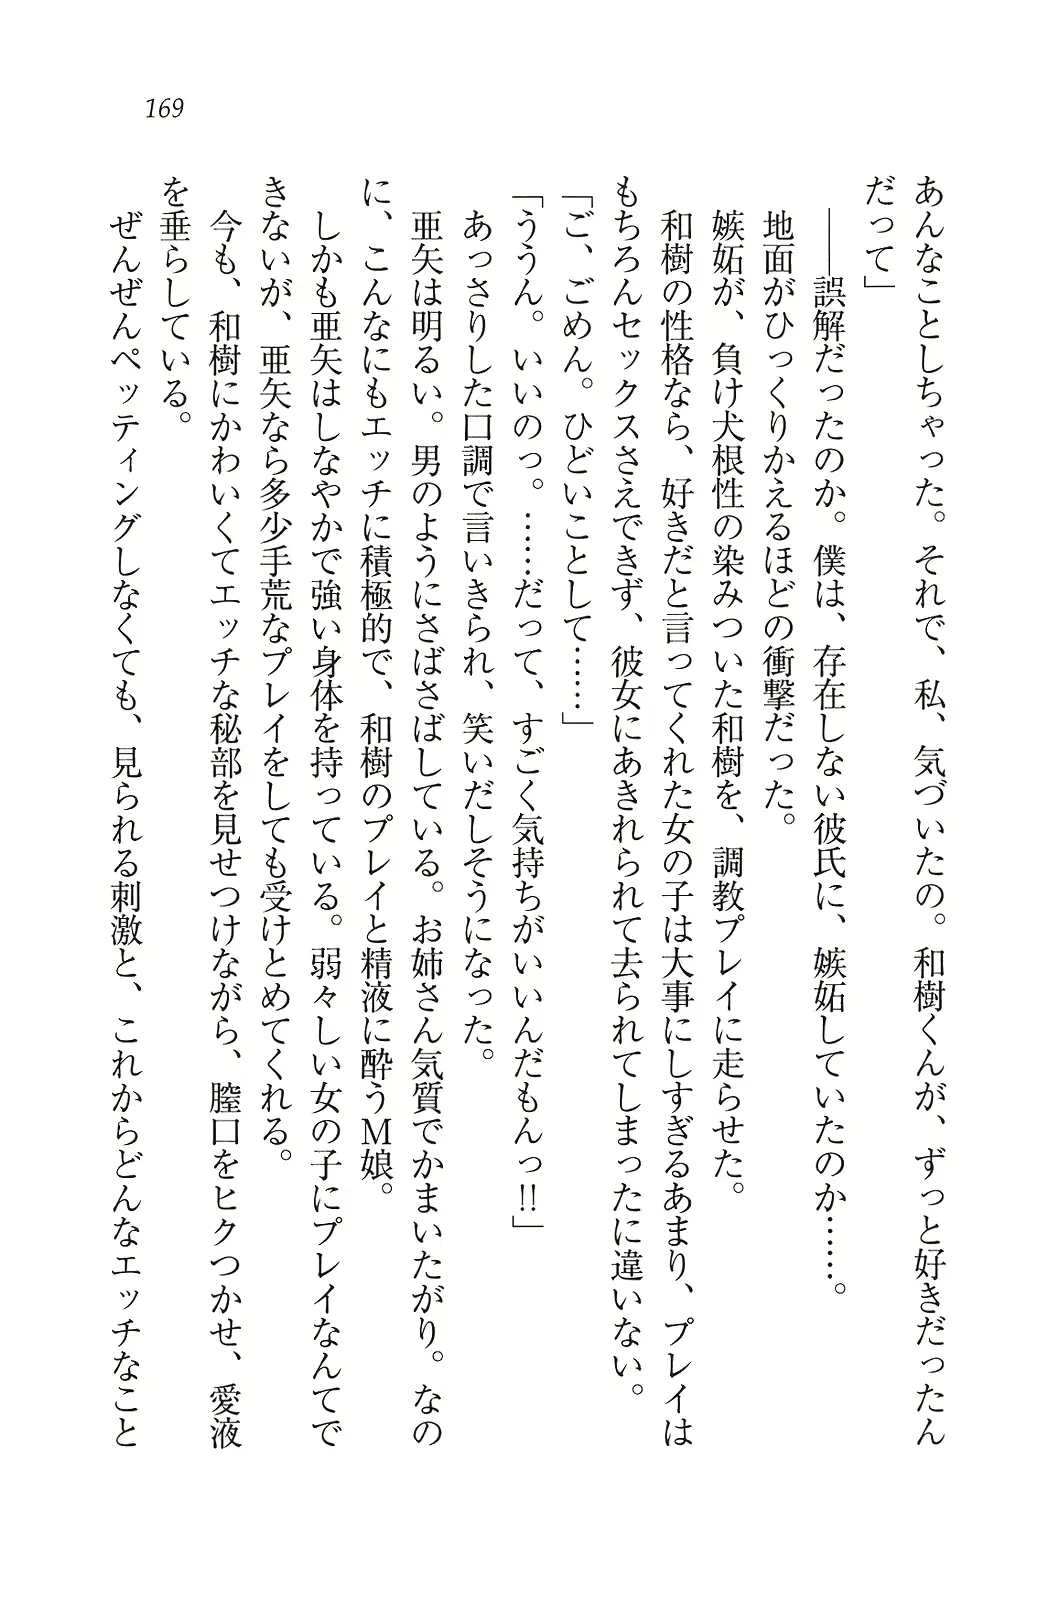 169
あんなことしちゃった。それで、私、気づいたの。和樹くんが、ずっと好きだったん
だって」
――誤解だったのか。僕は、存在しない彼氏に、嫉妬していたのか……。
地面がひっくりかえるほどの衝撃だった。
嫉妬が、負け犬根性の染みついた和樹を、調教プレイに走らせた。
和樹の性格なら、好きだと言ってくれた女の子は大事にしすぎるあまり、プレイは
もちろんセックスさえできず、彼女にあきれられて去られてしまったに違いない。
「ご、ごめん。ひどいことして……」
「ううん。いいのっ。……だって、すごく気持ちがいいんだもんっ!!」
あっさりした口調で言いきられ、笑いだしそうになった。
亜矢は明るい。男のようにさばさばしている。お姉さん気質でかまいたがり。なの
に、こんなにもエッチに積極的で、和樹のプレイと精液に酔うM娘。
しかも亜矢はしなやかで強い身体を持っている。弱々しい女の子にプレイなんてで
きないが、亜矢なら多少手荒なプレイをしても受けとめてくれる。
今も、和樹にかわいくてエッチな秘部を見せつけながら、膣口をヒクつかせ、愛液
を垂らしている。
ぜんぜんペッティングしなくても、見られる刺激と、これからどんなエッチなこと